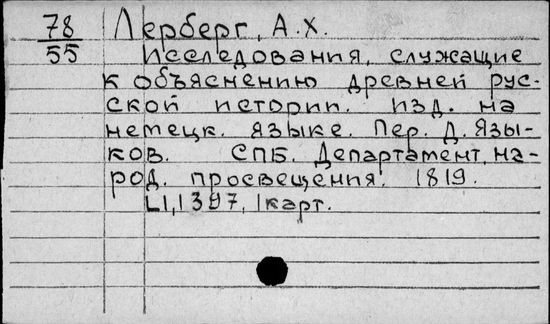 78
55
Лерберг, А.Х.
Исследования, служащие
к объяснению древней рус-
ской истории. Изд. на
немецк. языке. Пер. Д. Язы-
ков. СПБ. Департамент на-
род. просвещения. 1819.
LI, 1397, 1карт.